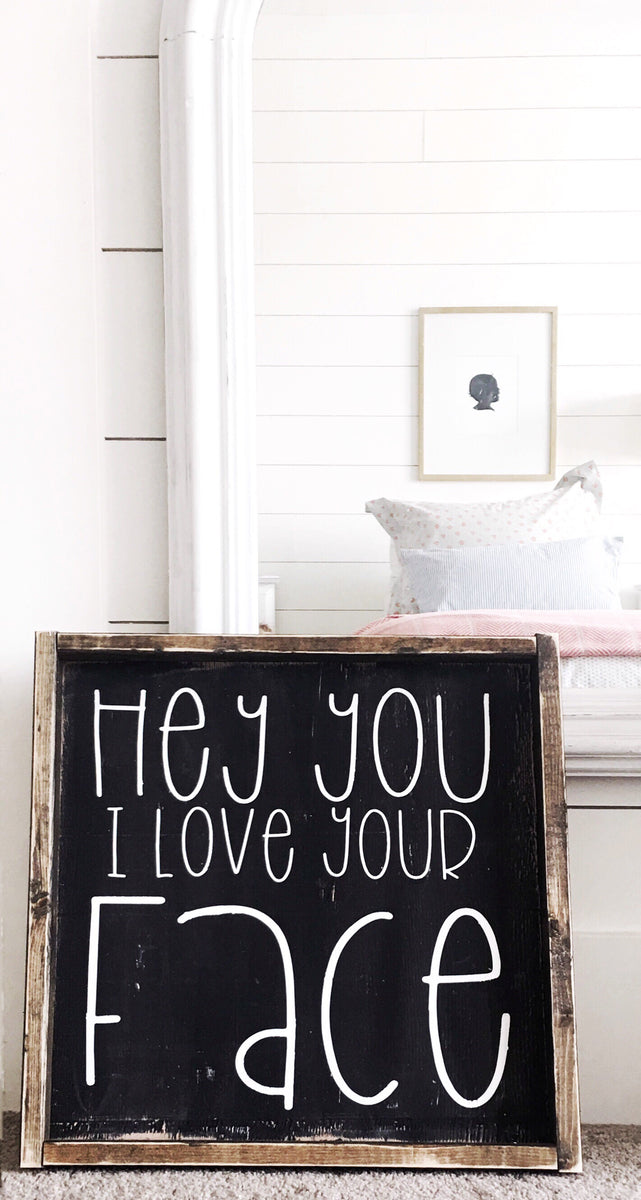 Hey you
I love your
Face